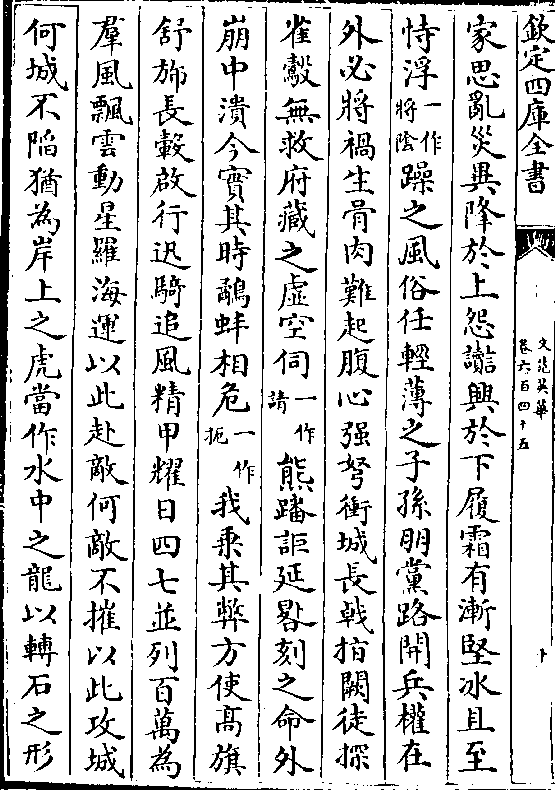 欽定四庫全書
文苑英華
卷六百四十五
家思亂災異降於上怨讟興於下履霜有漸堅冰且至
恃浮一作將陰躁之風俗任輕薄之子孫朋黨路開兵權在
外必將禍生骨肉難起腹心强弩衝城長戟指闕徒探
雀鷇無救府藏之虛空伺一作請熊蹯詎延晷刻之命外
崩中潰今實其時鷸蚌相危一作扼我乘其弊方使髙旗
舒斾長轂啟行迅騎追風精甲耀日四七並列百萬為
羣風飄雲動星羅海運以此赴敵何敵不摧以此攻城
何城不陷猶為岸上之虎當作水中之龍以轉石之形